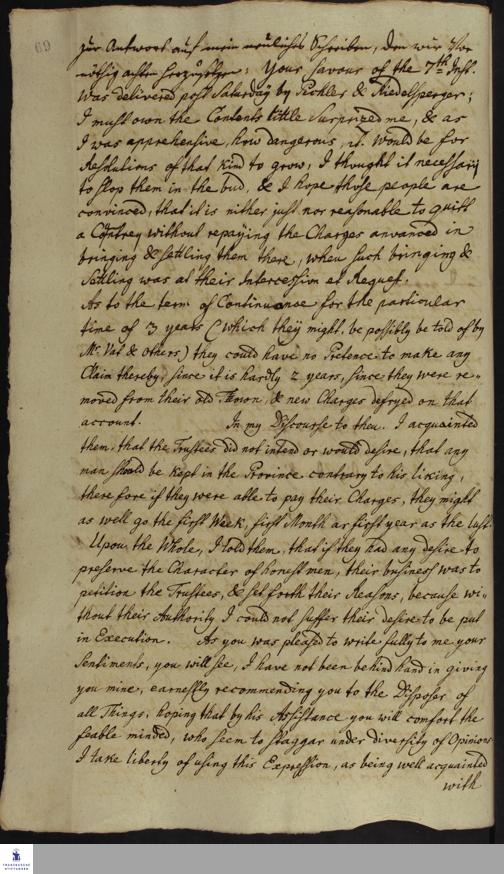 69
zur Antwort auf mein neuliches Schreiben, den wir vor
nöthig achten herzusetzen: Your favour of the 7th Inst.
was delivered post Saturday by Pichler & Riedelsperger;
I must own the Contents little Surprized me, & as
I was apprehensive, how dangerous it would be for
Resolutions of that kind to grow, I thought it necessary
to stop them in the bud, & I hope those people are
convinced, that it is nither just nor reasonable to quitt
a Contrey without repaying the Charges anvanced in
bringing & settling them there, when such bringing &
Settling was at their Intercession et Request.
As to the term of Continuance for the particular
time of 3 years (which theÿ might be possibly be told of by
Mr. Vat & others) they could have no Pretence to make any
Claim thereby, since it is hardly 2 years, since they were re-
moved from their old Town, & new Charges defryed on that
account. In my Discourse to them I acquainted
them, that the Trustees did not intend or would desire, that any
man should be kept in the Province contrary to his liking,
therefore if they were able to pay their Charges, they might
as well go the first Week, first Month or first year as the last.
Upon the Whole, I told them, that if they had any desire to
preserve the Character of honest men, their business was to
petition the Trustees, & set forth their Reasons, because wi-
thout their Authority I could not suffer their desire to be put
in Execution. As you was pleased to write fully to me your
Sentiments, you will see, I have not been behind hand in giving
you mine, earnestly recommending you to the Disposer of
all Things, hoping that by his Assistance you will comfort the
feable minded, who seem to staggar under diversity of Opinions.
I take liberty of using this Expression, as being well acquainted
with
FRANCKESCHE
STIFTUNGEN